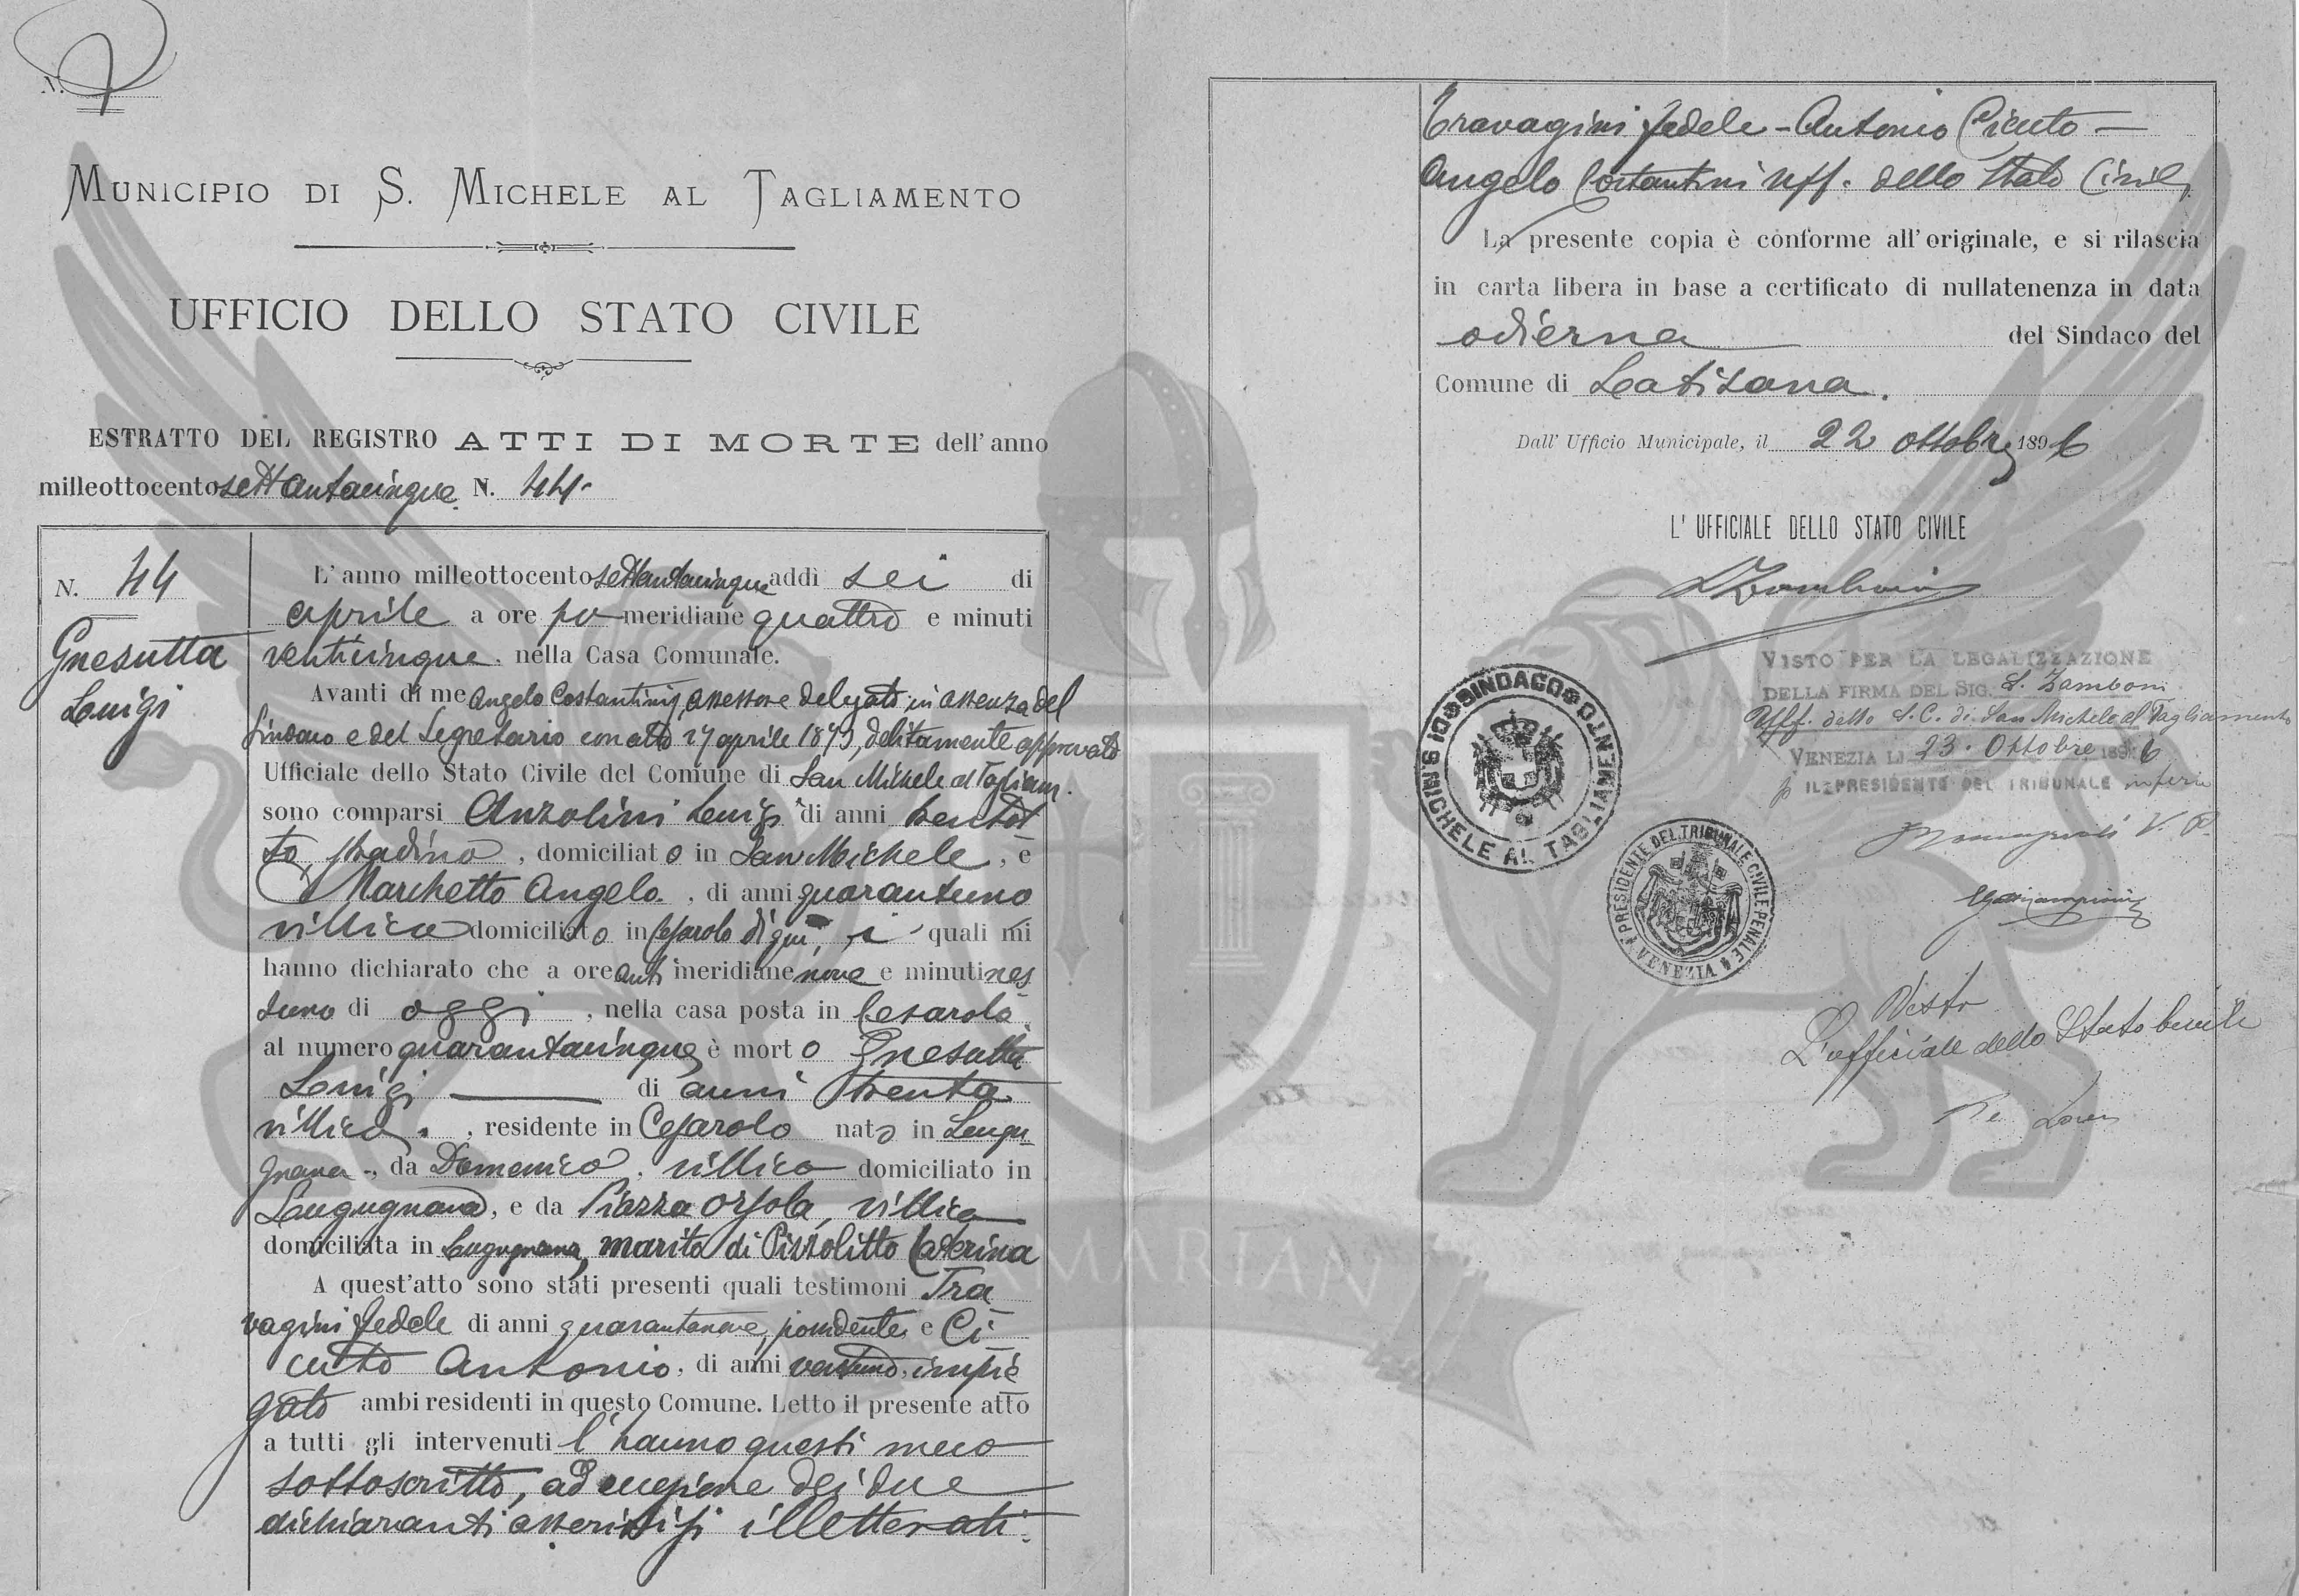 N. 7
MUNICIPIO DI S. MICHELE AL TAGLIAMENTO
UFFICIO DELLO STATO CIVILE
ESTRATTO DEL REGISTRO ATTI DI MORTE dell'anno
milleottocentosettantacinque N. 44.
N. 44
Gnesutta
Luigi
L'anno milleottocentosettantacinque addì sei di
aprile a ore po-meridiane quattro e minuti
venticinque, nella Casa Comunale.
Avanti di me Angelo Costantini, assessore delegato in assenza del
Sindaco e del Segretario con atto aprile debitamente approvato
Ufficiale dello Stato Civile del Comune di San Michele al Tagliam.
sono comparsi Anzolini Luigi di anni trentot
to stradino, domiciliato in San Michele, e
Marchetto Angelo, di anni quarantuno
villico domiciliato in Cesarolo di qui, i quali mi
hanno dichiarato che a ore anti meridiane nove e minuti nes
suno di oggi, nella casa posta in Cesarolo
al numero quarantacinque è morto Gnesutta
Luigi di anni trenta
villico, residente in Cesarolo nato in Lugu
gnana, da Domenico, villico domiciliato in
Lugugnana, e da Piazza Orsola, villica
domiciliata in Lugugnana, marito di Pizzolitto Caterina
A quest'atto sono stati presenti quali testimoni Tra
vagini Fedele di anni quarantanove, possidente, e Ci
cuto Antonio, di anni ventuno, impie
gato ambi residenti in questo Comune. Letto il presente atto
a tutti gli intervenuti l'hanno questi meco
sottoscritto, ad eccezione dei due
dichiaranti asseritisi illetterati.
Travagini Fedele - Antonio Cicuto -
Angelo Costantini Uff. dello Stato Civile
La presente copia è conforme all'originale, e si rilascia
in carta libera in base a certificato di nullatenenza in data
odierna del Sindaco del
Comune di Latisana.
Dall'Ufficio Municipale, il 22 ottobre 1896
L'UFFICIALE DELLO STATO CIVILE
LZamboni
SINDACO DI S. MICHELE AL TAGLIAMENTO
VISTO PER LA LEGALIZZAZIONE
DELLA FIRMA DEL SIG. L. Zamboni
Uff. dello S.C. di San Michele al Tagliamento
VENEZIA LI 23 Ottobre 1896
p IL PRESIDENTE DEL TRIBUNALE
V. P.
PRESIDENTE DEL TRIBUNALE CIVILE PENALE VENEZIA
Visto
L'ufficiale dello Stato Civile
AMARIAN